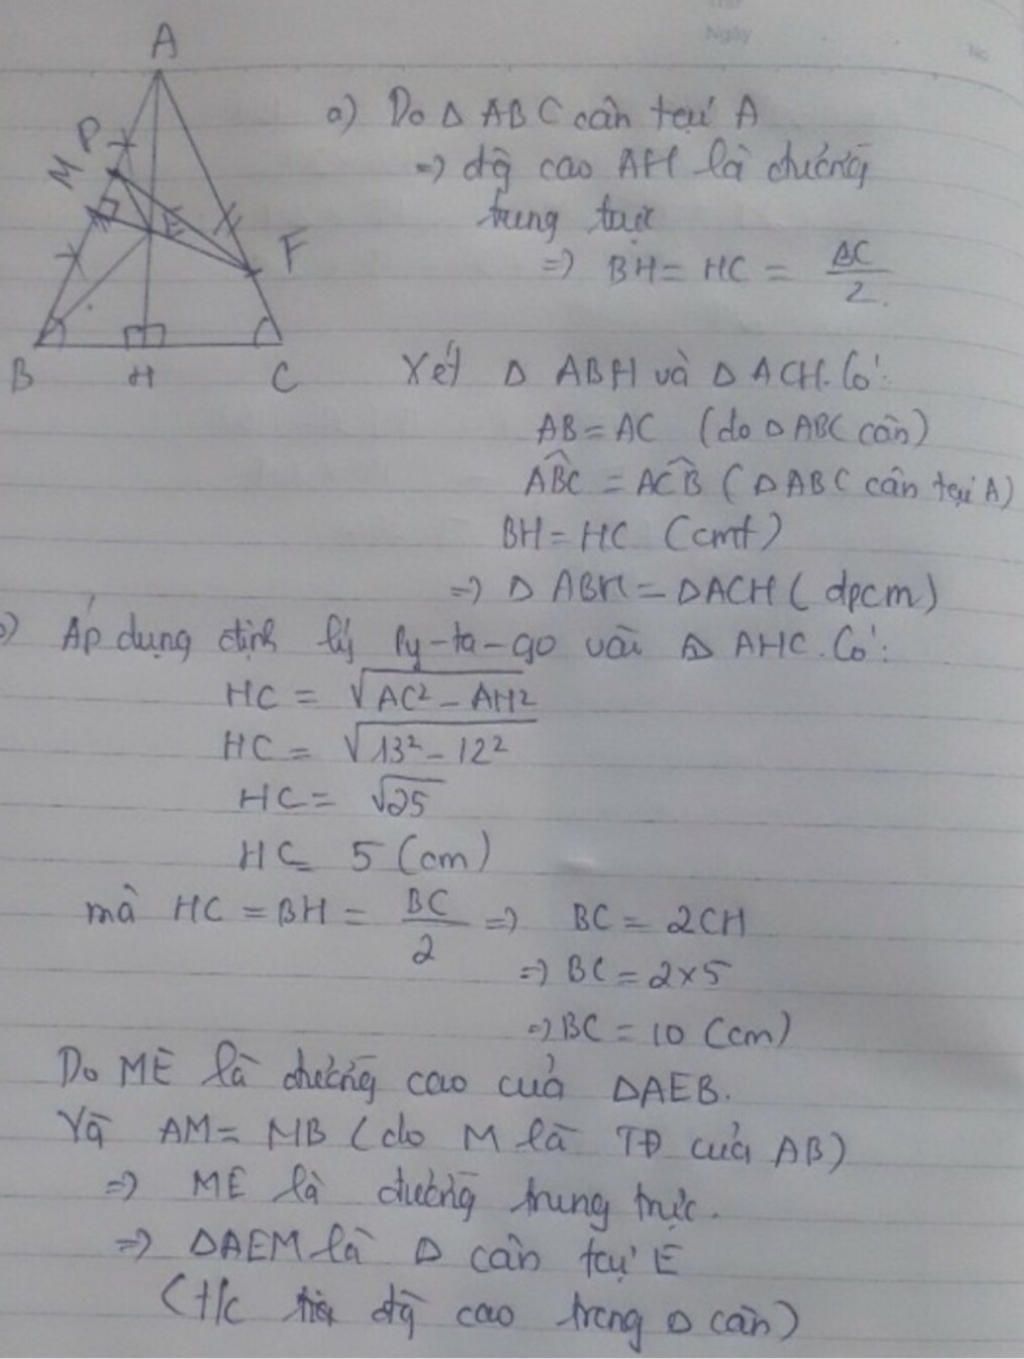 Ngày
No
A
P
M
E
F
B
H
C
a) Do Δ ABC cân tại A
=> độ cao AH là đường
trung trực
=> BH = HC = BC/2
Xét Δ ABH và Δ ACH. Có:
AB = AC (do Δ ABC cân)
ABC = ACB (Δ ABC cân tại A)
BH = HC (cmt)
=> Δ ABH = Δ ACH (dpcm)
b) Áp dụng định lý Py-ta-go vào Δ AHC. Có:
HC = √AC² - AH²
HC = √13² - 12²
HC = √25
HC = 5 (cm)
mà HC = BH = BC/2 => BC = 2CH
=> BC = 2x5
=> BC = 10 (cm)
Do ME là đường cao của ΔAEB.
Và AM = MB (do M là TĐ của AB)
=> ME là đường trung trực.
=> ΔAEM là Δ cân tại E
(t/c độ cao trong Δ cân)